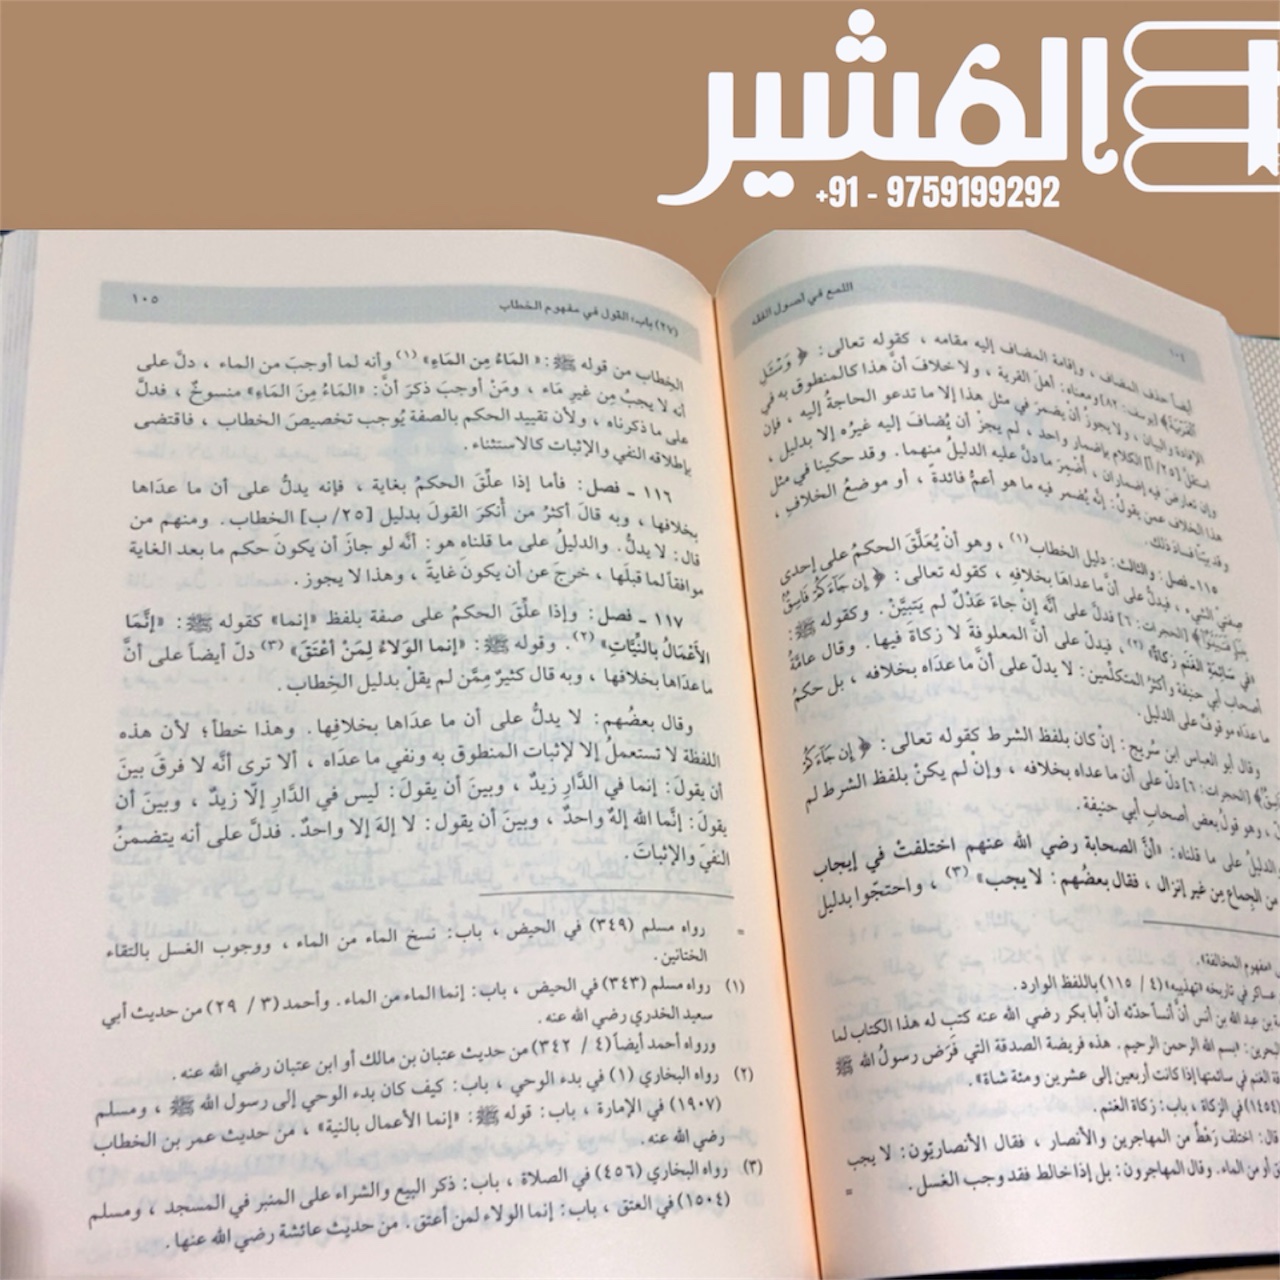 المشير
+91 - 9759199292
اللمع في أصول الفقه
١٠٤
أيضاً حذف المضاف ، وإقامة المضاف إليه مقامه ، كقوله تعالى: ﴿ وَسْـَٔلِ
الْقَرْيَةَ﴾ [يوسف: ٨٢] ومعناه: أهل القرية ، ولا خلاف أنَّ هذا كالمنطوق به في
الإفادة والبيان ، ولا يجوزُ أن يضمرَ في مثل هذا إلا ما تدعو الحاجةُ إليه ، فإن
استقلَّ [٢٥/ أ] الكلام بإضمار واحد ، لم يجزْ أن يُضافَ إليه غيرُه إلا بدليل ،
وإن تعارضَ فيه إضماران ، أُضمِرَ ما دلَّ عليه الدليلُ منهما . وقد حكينا في مثل
هذا الخلاف عمن يقولُ: إنَّه يُضمر فيه ما هو أعمُّ فائدةً ، أو موضعُ الخلافِ ،
وقد بينّا فسادَ ذلك .
١١٥ ـ فصل: والثالث: دليل الخطاب(١) ، وهو أنْ يُعَلَّقَ الحكمُ على إحدى
صِفتي الشيء ، فيدلُّ على أنَّ ما عداها بخلافِه ، كقوله تعالى: ﴿ إِن جَآءَكُمْ فَاسِقٌۢ
بِنَبَإٍ فَتَبَيَّنُوٓا۟﴾ [الحجرات: ٦] فدلَّ على أنَّه إنْ جاءَ عَدْلٌ لم يَتَبيَّنْ . وكقوله ﷺ:
«في سَائِمَةِ الغَنَمِ زكاةٌ» (٢) ، فيدلّ على أنَّ المعلوفةَ لا زكاةَ فيها . وقال عامَّةُ
أصحاب أبي حنيفة وأكثرُ المتكلِّمين: لا يدلّ على أنَّ ما عدَاه بخلافه ، بل حكمُ
ما عداه موقوفٌ على الدليل .
وقال أبو العباس ابن سُريج: إنْ كان بلفظ الشرط كقوله تعالى: ﴿ إِن جَآءَكُمْ
[الحجرات: ٦] دلَّ على أن ما عداه بخلافه ، وإنْ لم يكنْ بلفظ الشرط لم
، وهو قولُ بعض أصحابِ أبي حنيفة .
الدليلُ على ما قلناه: «أنَّ الصحابة رضي الله عنهم اختلفتْ في إيجاب
من الجِماع مِن غير إنزال ، فقال بعضُهم: لا يجب» (٣) ، واحتجّوا بدليل
«مفهوم المخالفة».
عساكر في تاريخه «تهذيبه» (٤ / ١١٥) باللفظ الوارد.
بن عبد الله بن أنس أنَّ أنساً حدَّثه أنَّ أبا بكر رضي الله عنه كتب له هذا الكتاب لما
البحرين: «بسم الله الرحمن الرحيم . هذه فريضة الصدقة التي فَرَض رسولُ الله ﷺ
الغنم في سائمتها إذا كانت أربعين إلى عشرين ومئة شاة» .
(١٤٥٤) في الزكاة ، باب: زكاة الغنم .
قال: اختلف رَهْطٌ من المهاجرين والأنصار ، فقال الأنصاريّون: لا يجب
أو من الماء. وقال المهاجرون: بل إذا خالط فقد وجب الغسل .
=
(٢٧) باب: القول في مفهوم الخطاب
١٠٥
الخطاب من قوله ﷺ: «المَاءُ مِن المَاءِ» (١) وأنه لما أوجبَ من الماء ، دلَّ على
أنه لا يجبُ مِن غيرِ مَاء ، ومَنْ أوجبَ ذكرَ أنَّ: «المَاءُ مِنَ المَاءِ» منسوخٌ ، فدلَّ
على ما ذكرناه ، ولأن تقييد الحكم بالصفة يُوجب تخصيصَ الخطاب ، فاقتضى
بإطلاقه النفي والإثبات كالاستثناء .
١١٦ ـ فصل: فأما إذا علِّقَ الحكمُ بغاية ، فإنه يدلُّ على أن ما عدَاها
بخلافها ، وبه قالَ أكثرُ من أنكرَ القولَ بدليل [٢٥/ ب] الخطاب . ومنهم من
قال: لا يدلُّ . والدليلُ على ما قلناه هو: أنَّه لو جازَ أن يكونَ حكم ما بعد الغاية
موافقاً لما قبلَها ، خرجَ عن أن يكونَ غايةً ، وهذا لا يجوز .
١١٧ ـ فصل: وإذا علِّقَ الحكمُ على صفة بلفظ «إنما» كقوله ﷺ: «إنَّمَا
الأعْمَالُ بالنيَّاتِ» (٢) . وقوله ﷺ: «إنما الوَلاءُ لِمَنْ أعْتَقَ» (٣) دلّ أيضاً على أنَّ
ما عدَاها بخلافها ، وبه قال كثيرٌ مِمَّن لم يقلْ بدليل الخِطاب .
وقال بعضُهم: لا يدلُّ على أن ما عدَاها بخلافِها . وهذا خطأ؛ لأن هذه
اللفظة لا تستعملُ إلا لإثبات المنطوق به ونفي ما عدَاه ، ألا ترى أنَّه لا فرقَ بينَ
أن يقولَ: إنما في الدَّار زيدٌ ، وبينَ أن يقولَ: ليس في الدَّارِ إلّا زيدٌ ، وبينَ أن
يقولَ: إنَّما الله إلهٌ واحدٌ ، وبينَ أن يقول: لا إلهَ إلا واحدٌ . فدلَّ على أنه يتضمنُ
النفيَ والإثباتَ .
= رواه مسلم (٣٤٩) في الحيض ، باب: نسخ الماء من الماء ، ووجوب الغسل بالتقاء
الختانين .
(١) رواه مسلم (٣٤٣) في الحيض ، باب: إنما الماء من الماء . وأحمد (٣ / ٢٩) من حديث أبي
سعيد الخدري رضي الله عنه .
ورواه أحمد أيضاً (٤ / ٣٤٢) من حديث عتبان بن مالك أو ابن عتبان رضي الله عنه .
(٢) رواه البخاري (١) في بدء الوحي ، باب: كيف كان بدء الوحي إلى رسول الله ﷺ ، ومسلم
(١٩٠٧) في الإمارة ، باب: قوله ﷺ: «إنما الأعمال بالنية» ، من حديث عمر بن الخطاب
رضي الله عنه .
(٣) رواه البخاري (٤٥٦) في الصلاة ، باب: ذكر البيع والشراء على المنبر في المسجد ، ومسلم
(١٥٠٤) في العتق ، باب: إنما الولاء لمن أعتق . من حديث عائشة رضي الله عنها .